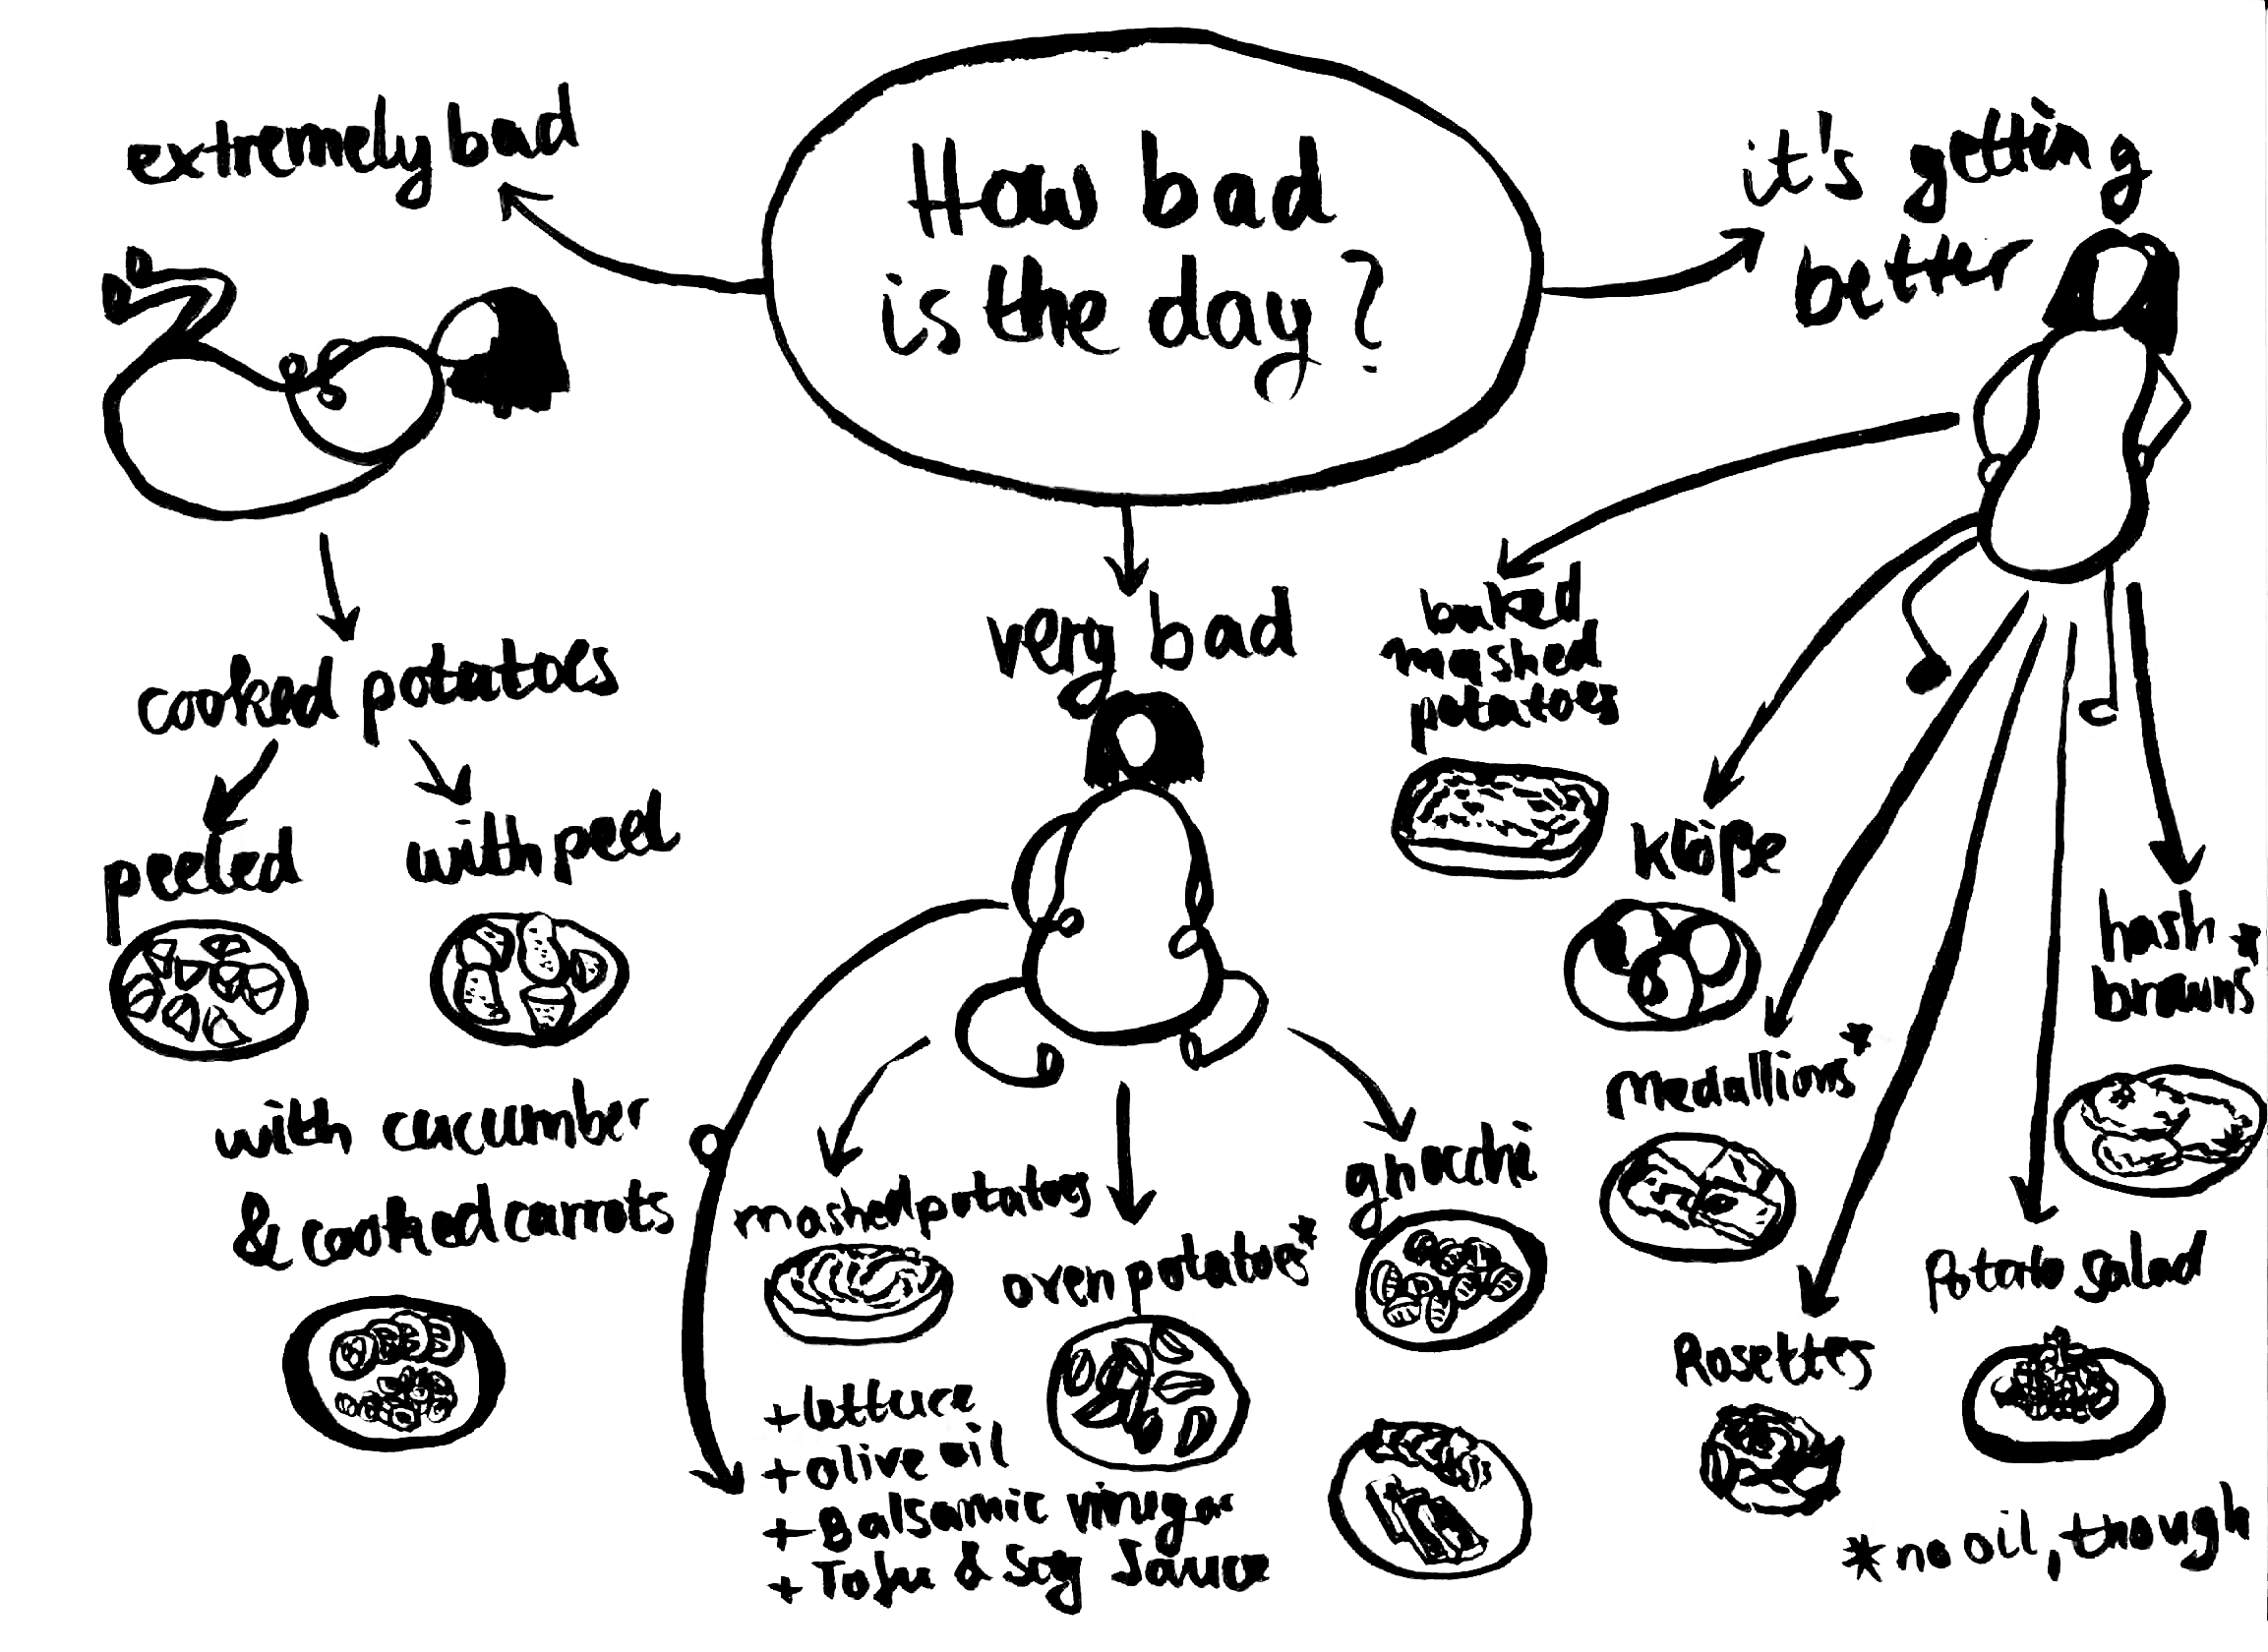 How bad
is the day?
extremely bad
cooked potatoes
peeled
with peel
with cucumber
& cooked carrots
very bad
mashed potatoes
oven potatoes*
gnocchi
+ lettuce
+ olive oil
+ Balsamic vinegar
+ Tofu & Soy Sauce
it's getting
better
baked
mashed
potatoes
Klöße
medallions*
Rosettes
Potato Salad
hash *
browns
*no oil, though